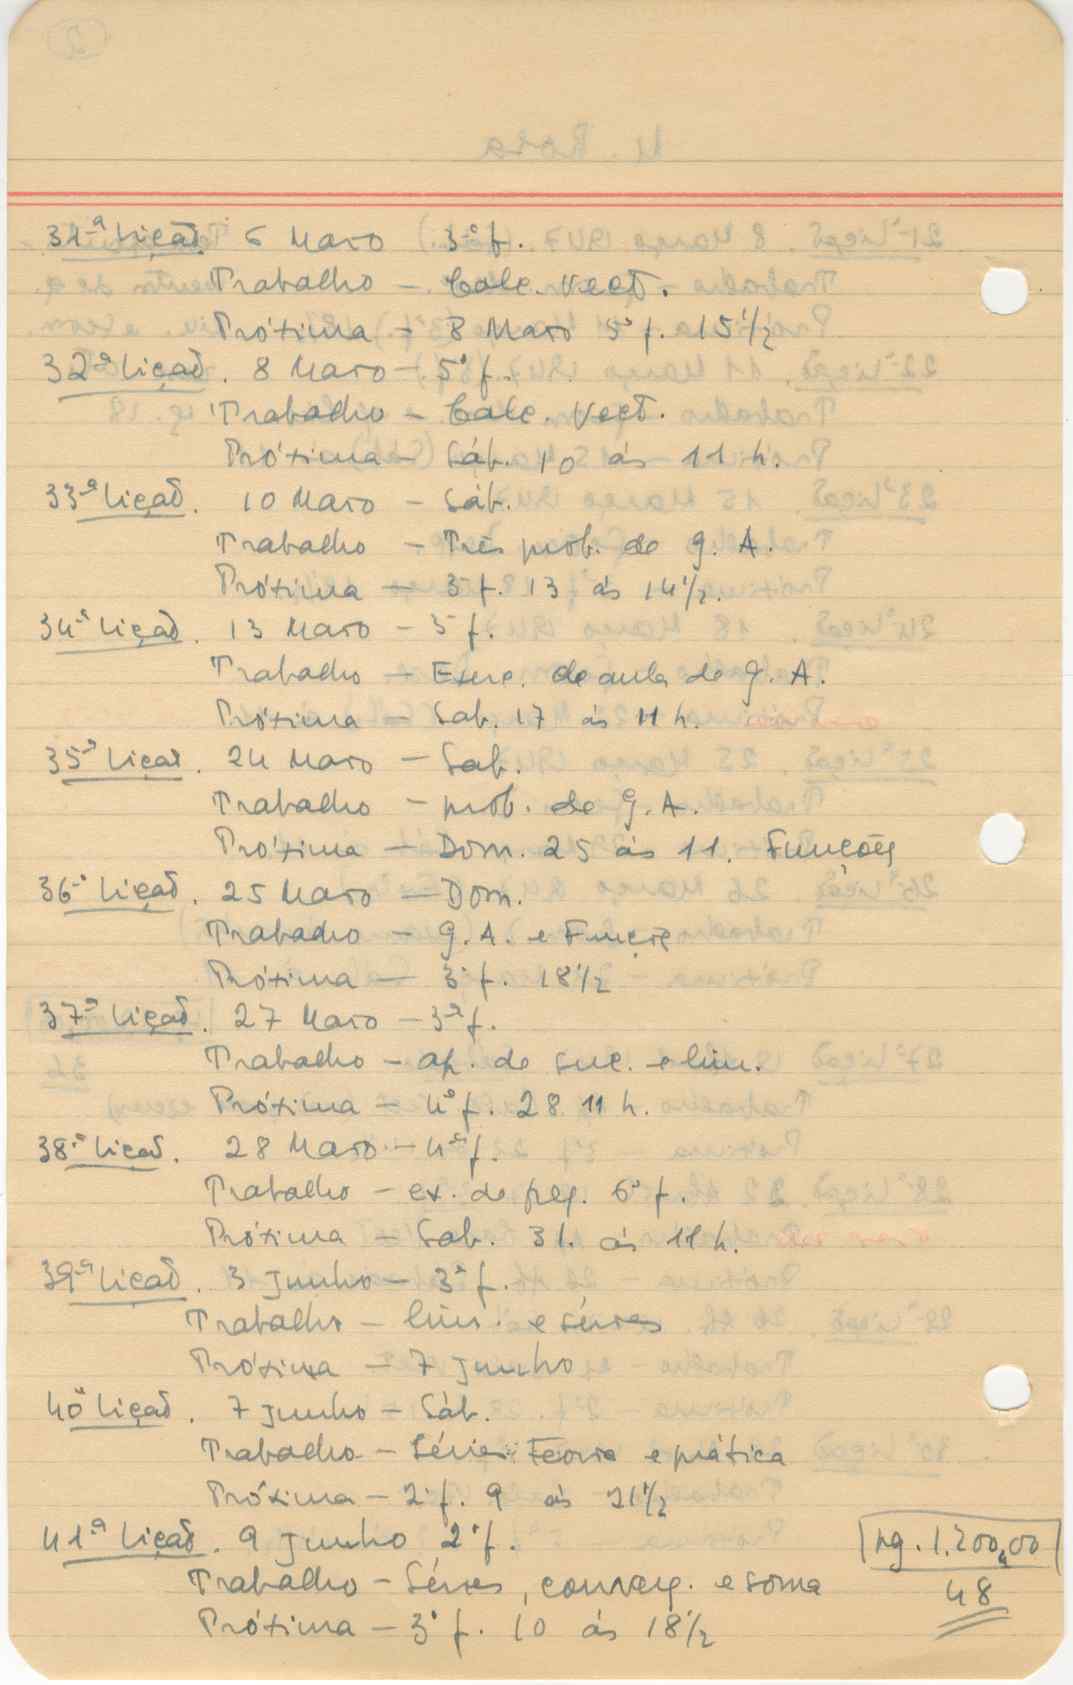 31ª Lição. 6 Maio 3ª f.
Trabalho – Calc. Vect.
Próxima – 8 Maio 5ª f. 15 1/2
32ª Lição. 8 Maio – 5ª f.
Trabalho – Calc. Vect.
Próxima – Sáb. 10 às 11 h.
33ª Lição. 10 Maio – Sáb.
Trabalho – Três prob. de G. A.
Próxima – 3ª f. 13 às 14 1/2.
34ª Lição. 13 Maio – 3ª f.
Trabalho – Exerc. de aula de G. A.
Próxima – Sab. 17 às 11 h.
35ª Lição. 24 Maio – Sab.
Trabalho – prob. de G. A.
Próxima – Dom. 25 às 11. Funções
36ª Lição. 25 Maio – Dom.
Trabalho – G. A. e Funções
Próxima – 3ª f. 18 1/2
37ª Lição. 27 Maio – 3ª f.
Trabalho – ap. de suc. e lim.
Próxima – 4ª f. 28 11 h.
38ª Lição. 28 Maio – 4ª f.
Trabalho – ex. de freq. 6ª f.
Próxima – Sab. 31. às 11 h.
39ª Lição. 3 Junho – 3ª f.
Trabalho – lim. e séries
Próxima – 7 Junho
40ª Lição. 7 Junho – Sáb.
Trabalho – Séries Teoria e prática
Próxima – 2ª f. 9 às 21 1/2
41ª Lição. 9 Junho 2ª f.
pg. 1.200,00
Trabalho – Séries, converg. e soma
48
Próxima – 3ª f. 10 às 18 1/2